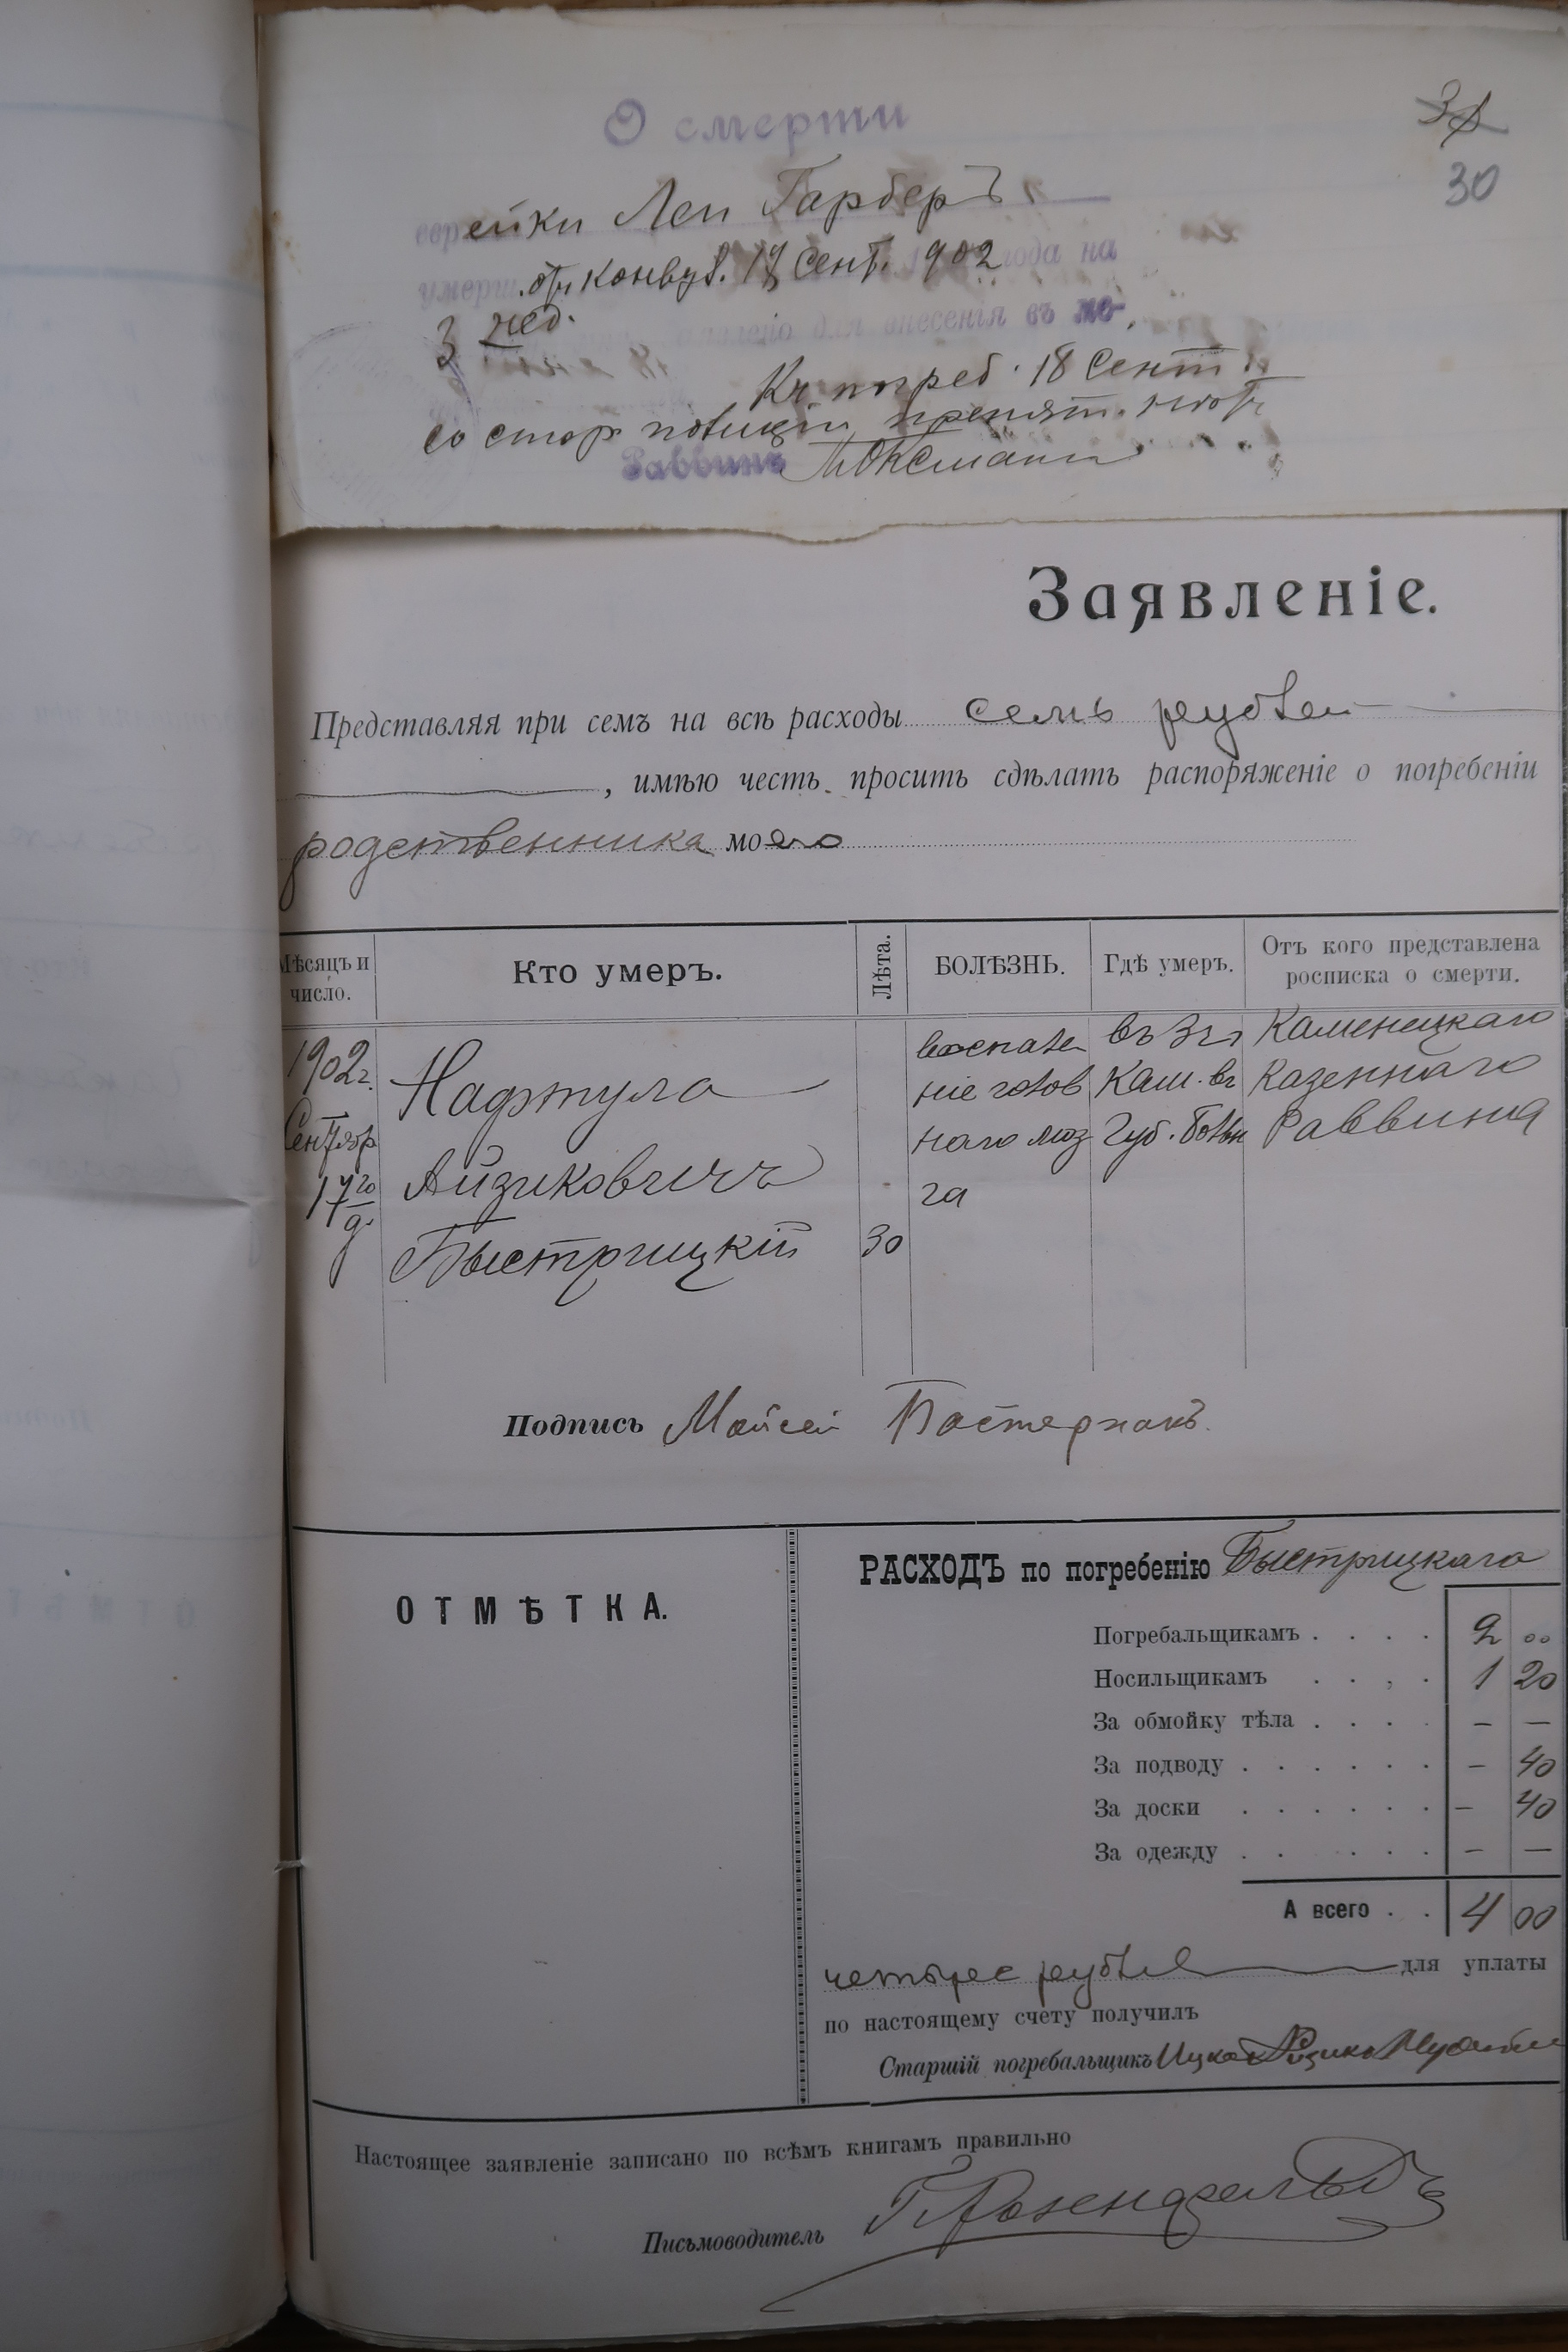 О смерти
31
30
еврейки Леи Гарберъ
умерш. отъ конвул. 17 Сент. 1902 года на
3 нед. для внесенія въ ме-
Къ погреб. 18 Сент.
со стор. полиціи препят. нѣтъ
Раввинъ М Оксманъ
Заявленіе.
Представляя при семъ на всѣ расходы семь рублей
, имѣю честь просить сдѣлать распоряженіе о погребеніи
родственника моего
Мѣсяцъ и число.
Кто умеръ.
Лѣта.
БОЛѢЗНЬ.
Гдѣ умеръ.
Отъ кого представлена росписка о смерти.
1902 г.
Сентябр
17го
д.
Нафтула
Айзиковичъ
Быстрицкій
30
воспале
ніе голов
наго моз
га
въ
Кам.
Губ. Больн
Каменецкаго
Казеннаго
Раввина
Подпись Мойсей Пастернакъ.
ОТМѢТКА.
РАСХОДЪ по погребенію Быстрицкаго
Погребальщикамъ . . . . 2 00
Носильщикамъ . . , . 1 20
За обмойку тѣла . . . . – —
За подводу . . . . . . – 40
За доски . . . . . . – 40
За одежду . . . . . . – —
А всего . . 4 00
четыре рубля для уплаты
по настоящему счету получилъ
Старшій погребальщикъ Ицко
Настоящее заявленіе записано по всѣмъ книгамъ правильно
Письмоводитель Г Розенфельдъ